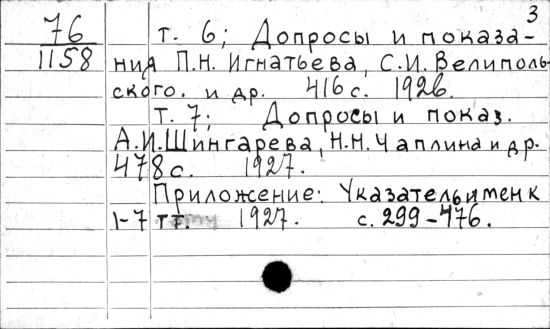 3
76 т. 6; Допросы и показа-
1158 ния П.Н. Игнатьева, С.И. Велиполь-
ского. и др. 416 с. 1926.
Т. 7; Допросы и показ.
А.И. Шингарева, Н.Н. Чаплина и др.
478 с. 1927.
Приложение: Указатель имен к
1-7 тт. 1927. с. 299-476.